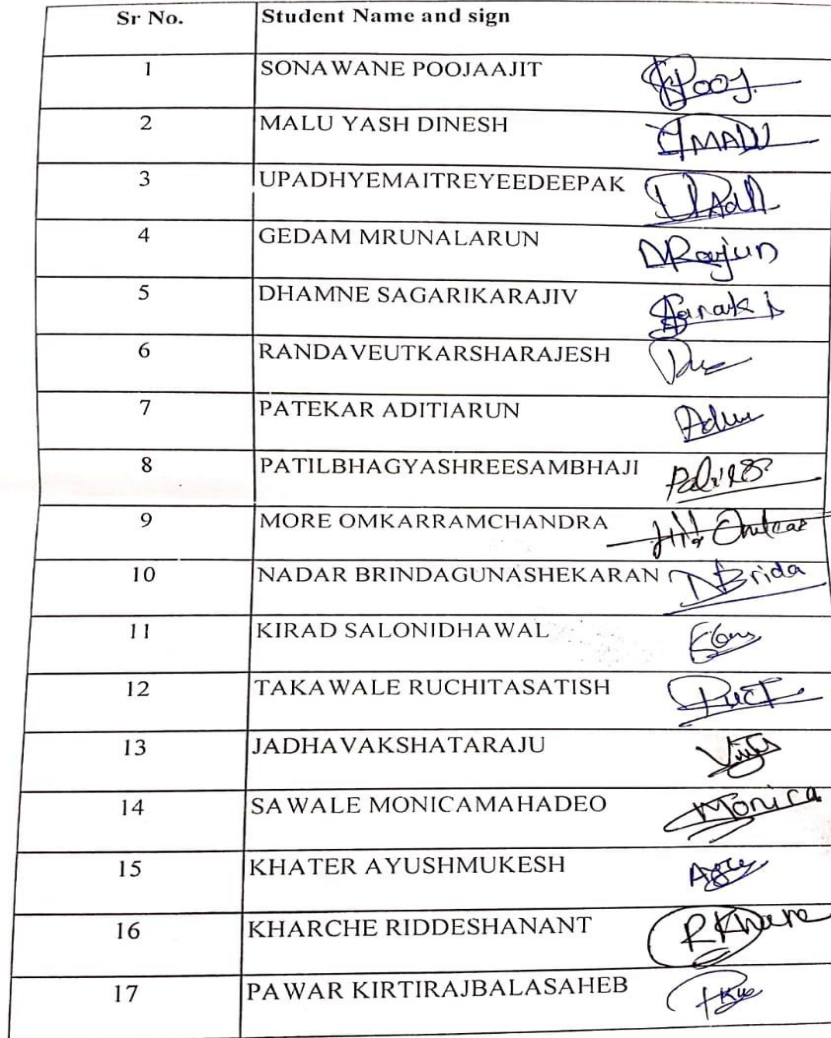 Sr No. Student Name and sign
1 SONAWANE POOJAAJIT
2 MALU YASH DINESH
3 UPADHYEMAITREYEEDEEPAK
4 GEDAM MRUNALARUN
5 DHAMNE SAGARIKARAJIV
6 RANDAVEUTKARSHARAJESH
7 PATEKAR ADITIARUN
8 PATILBHAGYASHREESAMBHAJI
9 MORE OMKARRAMCHANDRA
10 NADAR BRINDAGUNASHEKARAN
11 KIRAD SALONIDHAWAL
12 TAKAWALE RUCHITASATISH
13 JADHAVAKSHATARAJU
14 SAWALE MONICAMAHADEO Monica
15 KHATER AYUSHMUKESH
16 KHARCHE RIDDESHANANT
17 PAWAR KIRTIRAJBALASAHEB